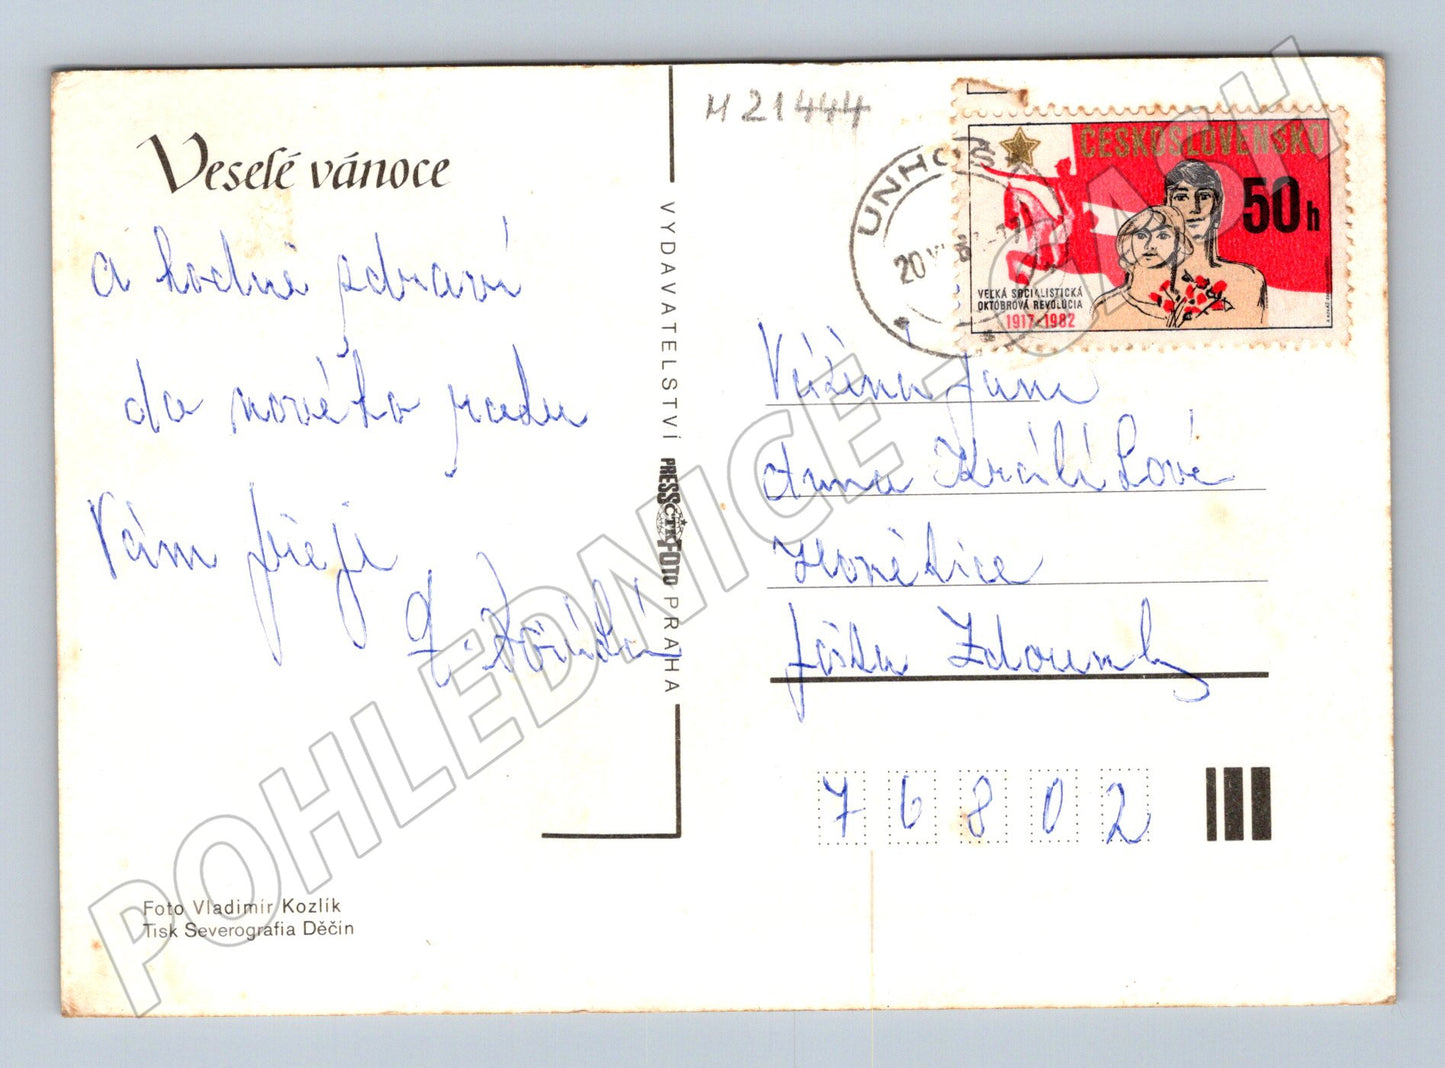 Veselé vánoce
a hodně zdraví
do nového roku
Vám přeje
M 21444
VYDAVATELSTVÍ PRESSFOTO PRAHA
ČTK
UNHOŠŤ
20
ČESKOSLOVENSKO
50h
VEĽKÁ SOCIALISTICKÁ
OKTÓBROVÁ REVOLÚCIA
1917-1982
Vážená
Anna Králíková
Honětice
pošta Zdounky
76802
Foto Vladimír Kozlík
Tisk Severografia Děčín
POHLEDNICE - CASH